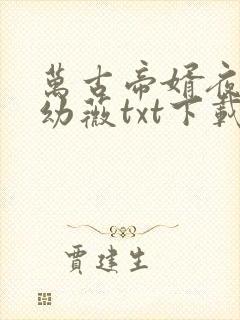 萬古帝婿夜
幼薇txt下載
賈建生